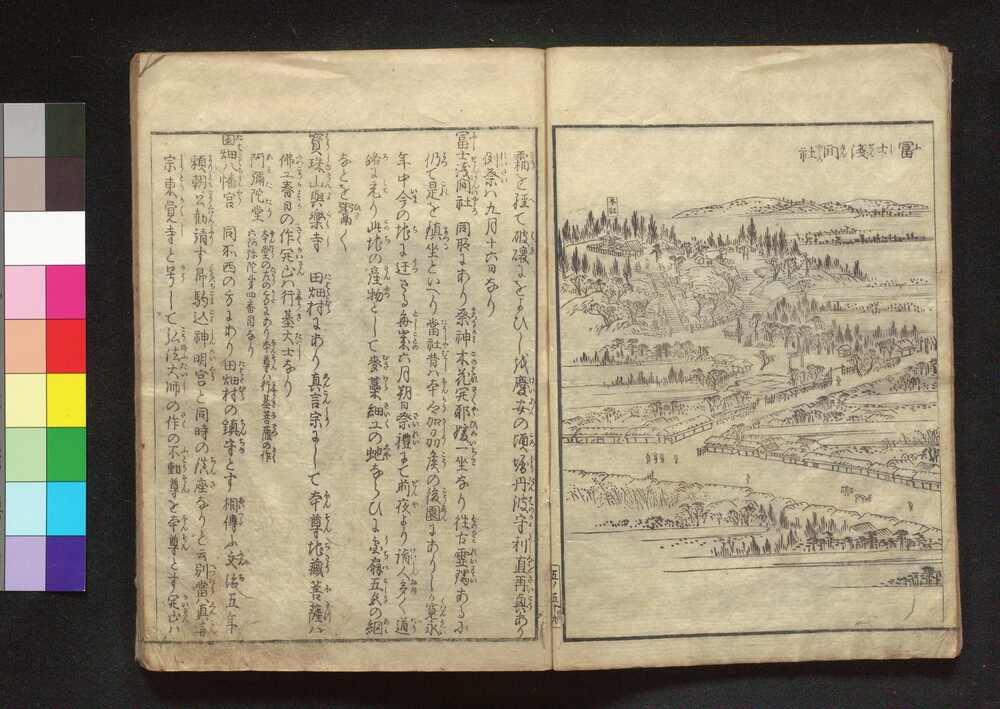 富士浅間社
本社
霜を経て破壊におよひしを慶安の頃堀丹波守利直再興あり
例祭ハ九月十六日なり
富士浅間社 同所にあり祭神木花開耶姫一坐なり往古霊瑞あるに
仍て是を鎮坐といへり當社昔ハ本郷加州侯の後園にありしを寛永
年中今の地に迁さる毎歳六月朔日祭禮にて前夜より詣人多く道
路に充り此地の産物として麥藁細工の蛇ならひに五色の網
なとを鬻く
寶珠山與樂寺 田畑村にあり真言宗にして本尊地蔵菩薩ハ
佛工春日の作開山ハ行基大士なり
阿彌陀堂 本堂の左の方にあり本尊ハ行基菩薩の作
六阿弥陀第四番目なり
田畑八幡宮 同所西の方にあり田畑村の鎮守とす相傳ふ文治五年
頼朝公勧請す
駒込神明宮と同時の
なりと云別當ハ真言
宗東覚寺と号して弘法大師の作の不動尊を本尊とす開山ハ